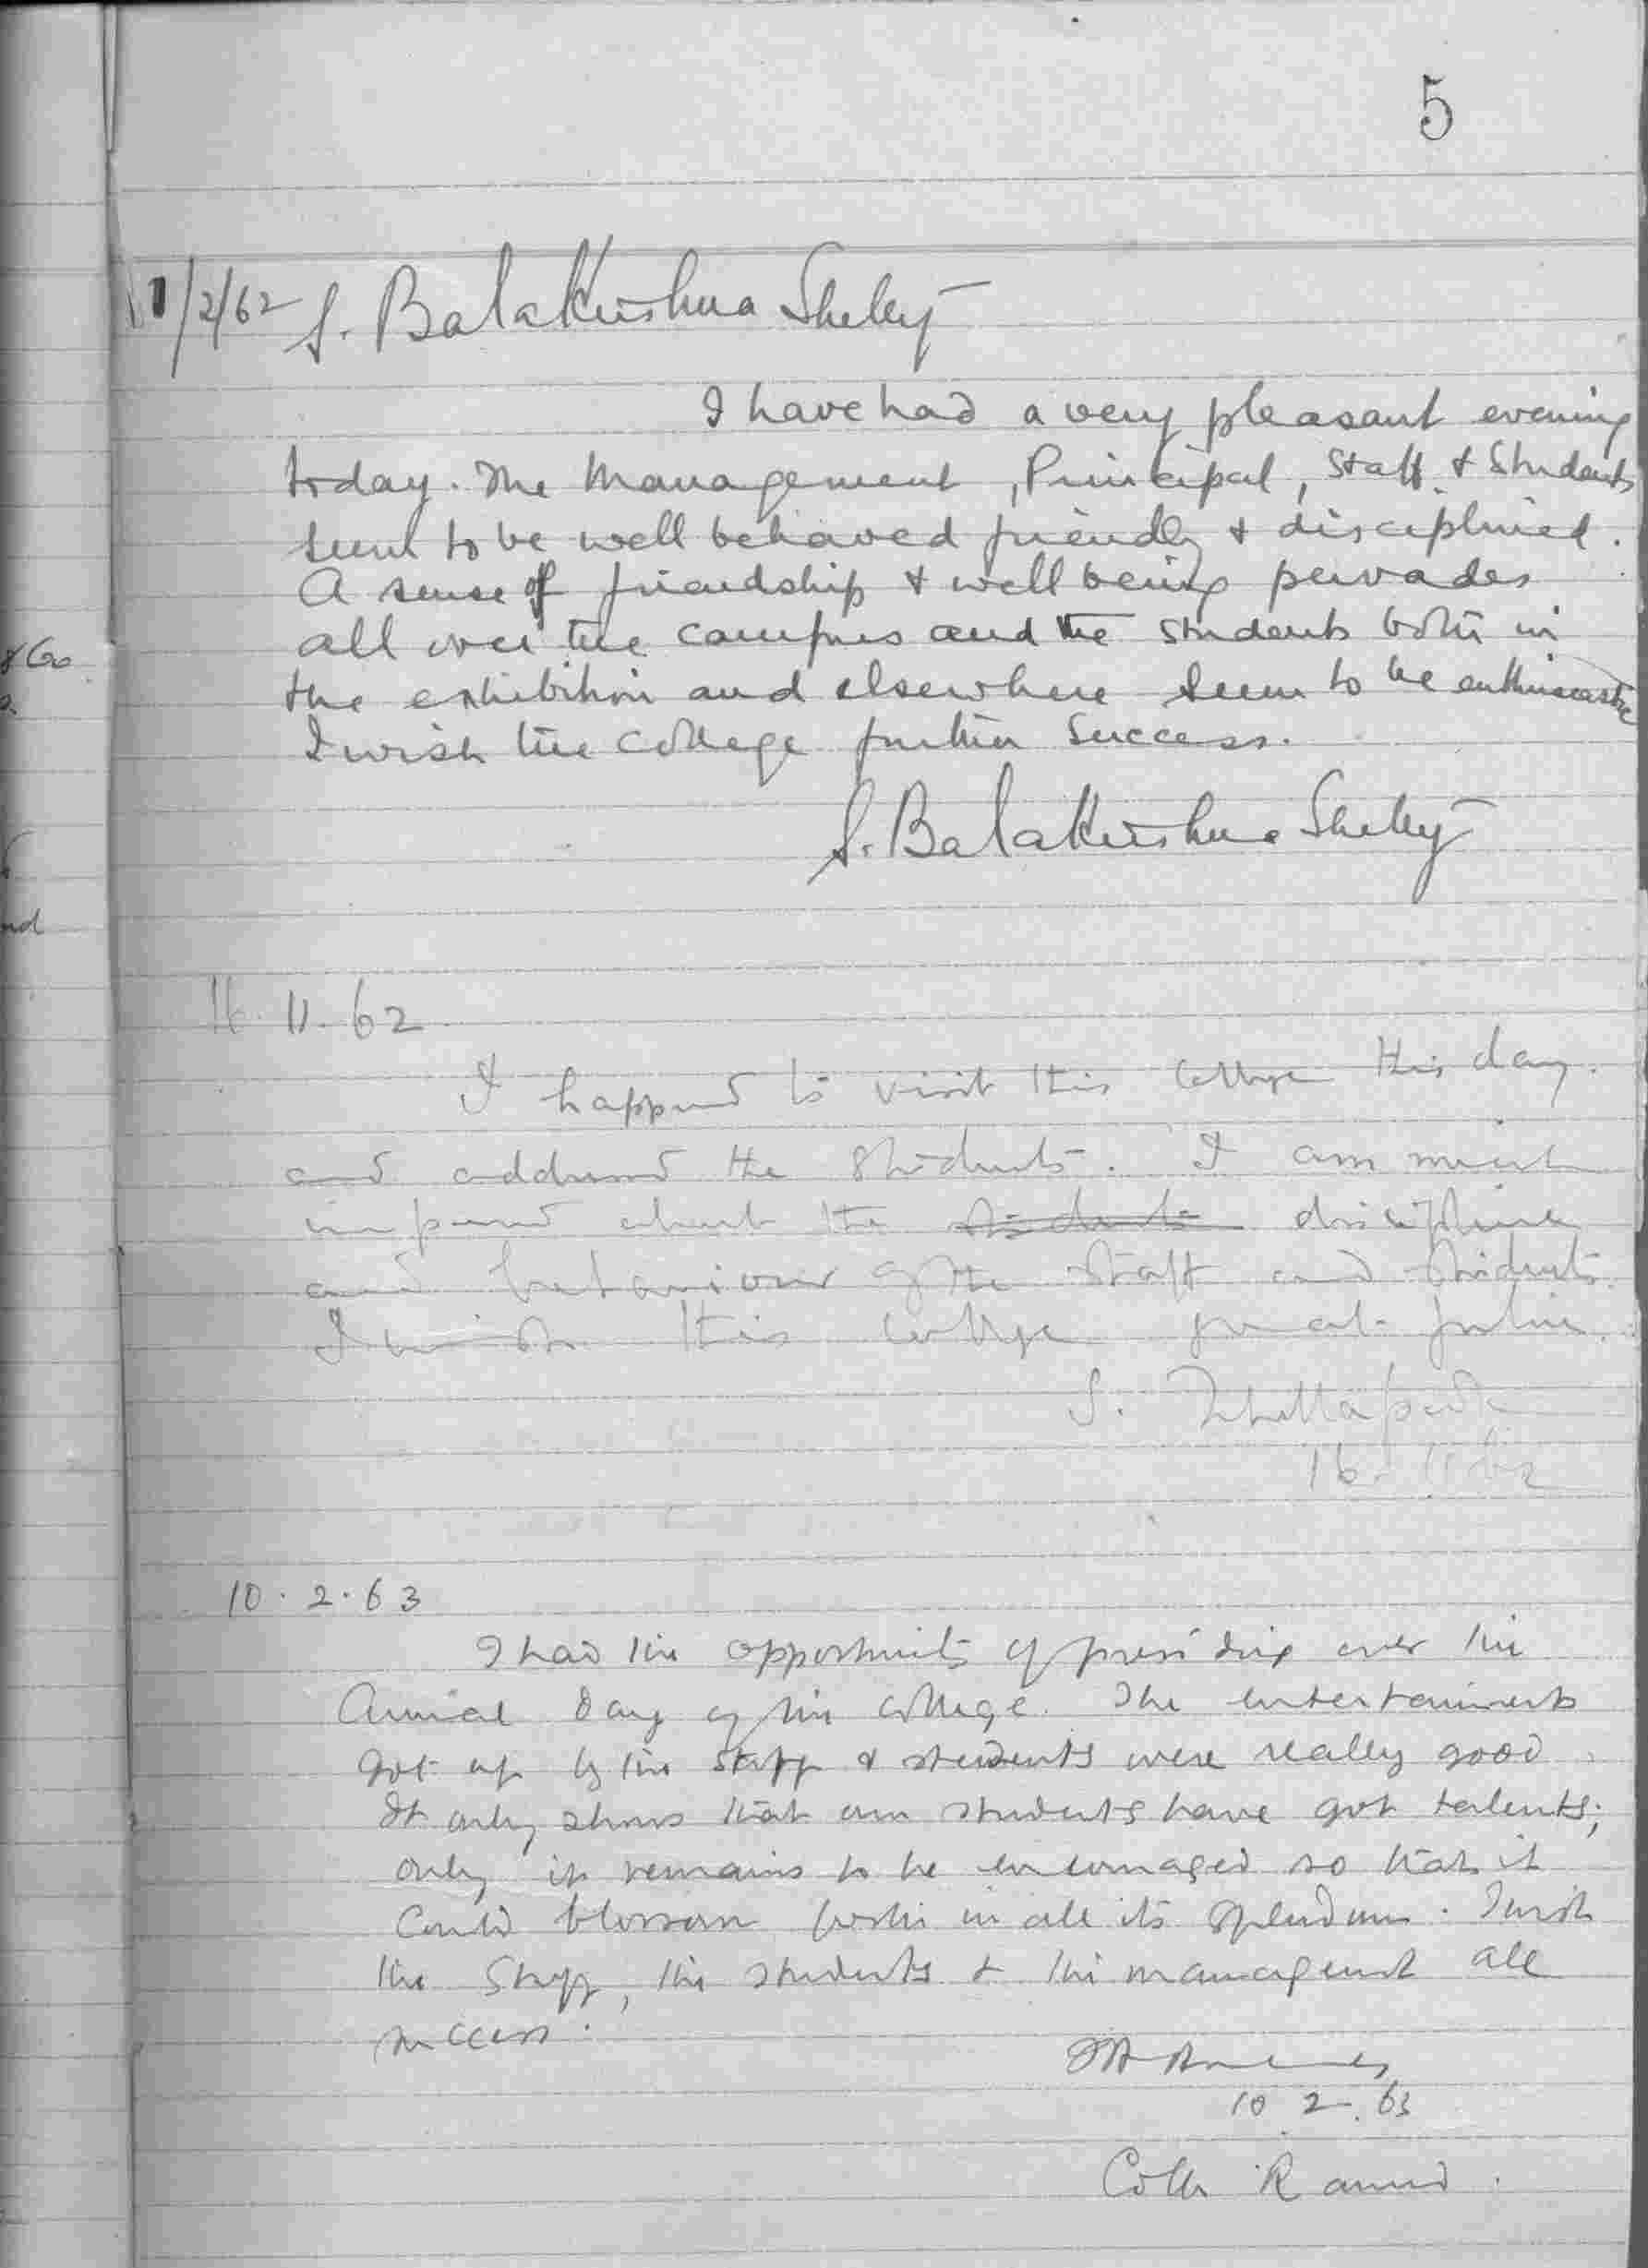 5
/2/62 S. Balakrishna Shetty
I have had a very pleasant evening
today. The Management, Principal, Staff & Students
seem to be well behaved friendly & disciplined.
A sense of friendship & well being pervades
all over the campus and the students both in
the exhibition and elsewhere seem to be enthusiastic
I wish the college further success.
S. Balakrishna Shetty
16.11.62
I happened to visit this college this day
and addressed the students. I am much
impressed about the students discipline
and behaviour of the staff and students.
I wish this college great future.
S.
16.11.62
10.2.63
I had the opportunity of presiding over the
Annual Day of the college. The entertainments
got up by the staff & students were really good.
It only shows that our students have got talents;
only it remains to be encouraged so that it
could blossom forth in all its splendour. I wish
the staff, the students & the management all
success.
10.2.63